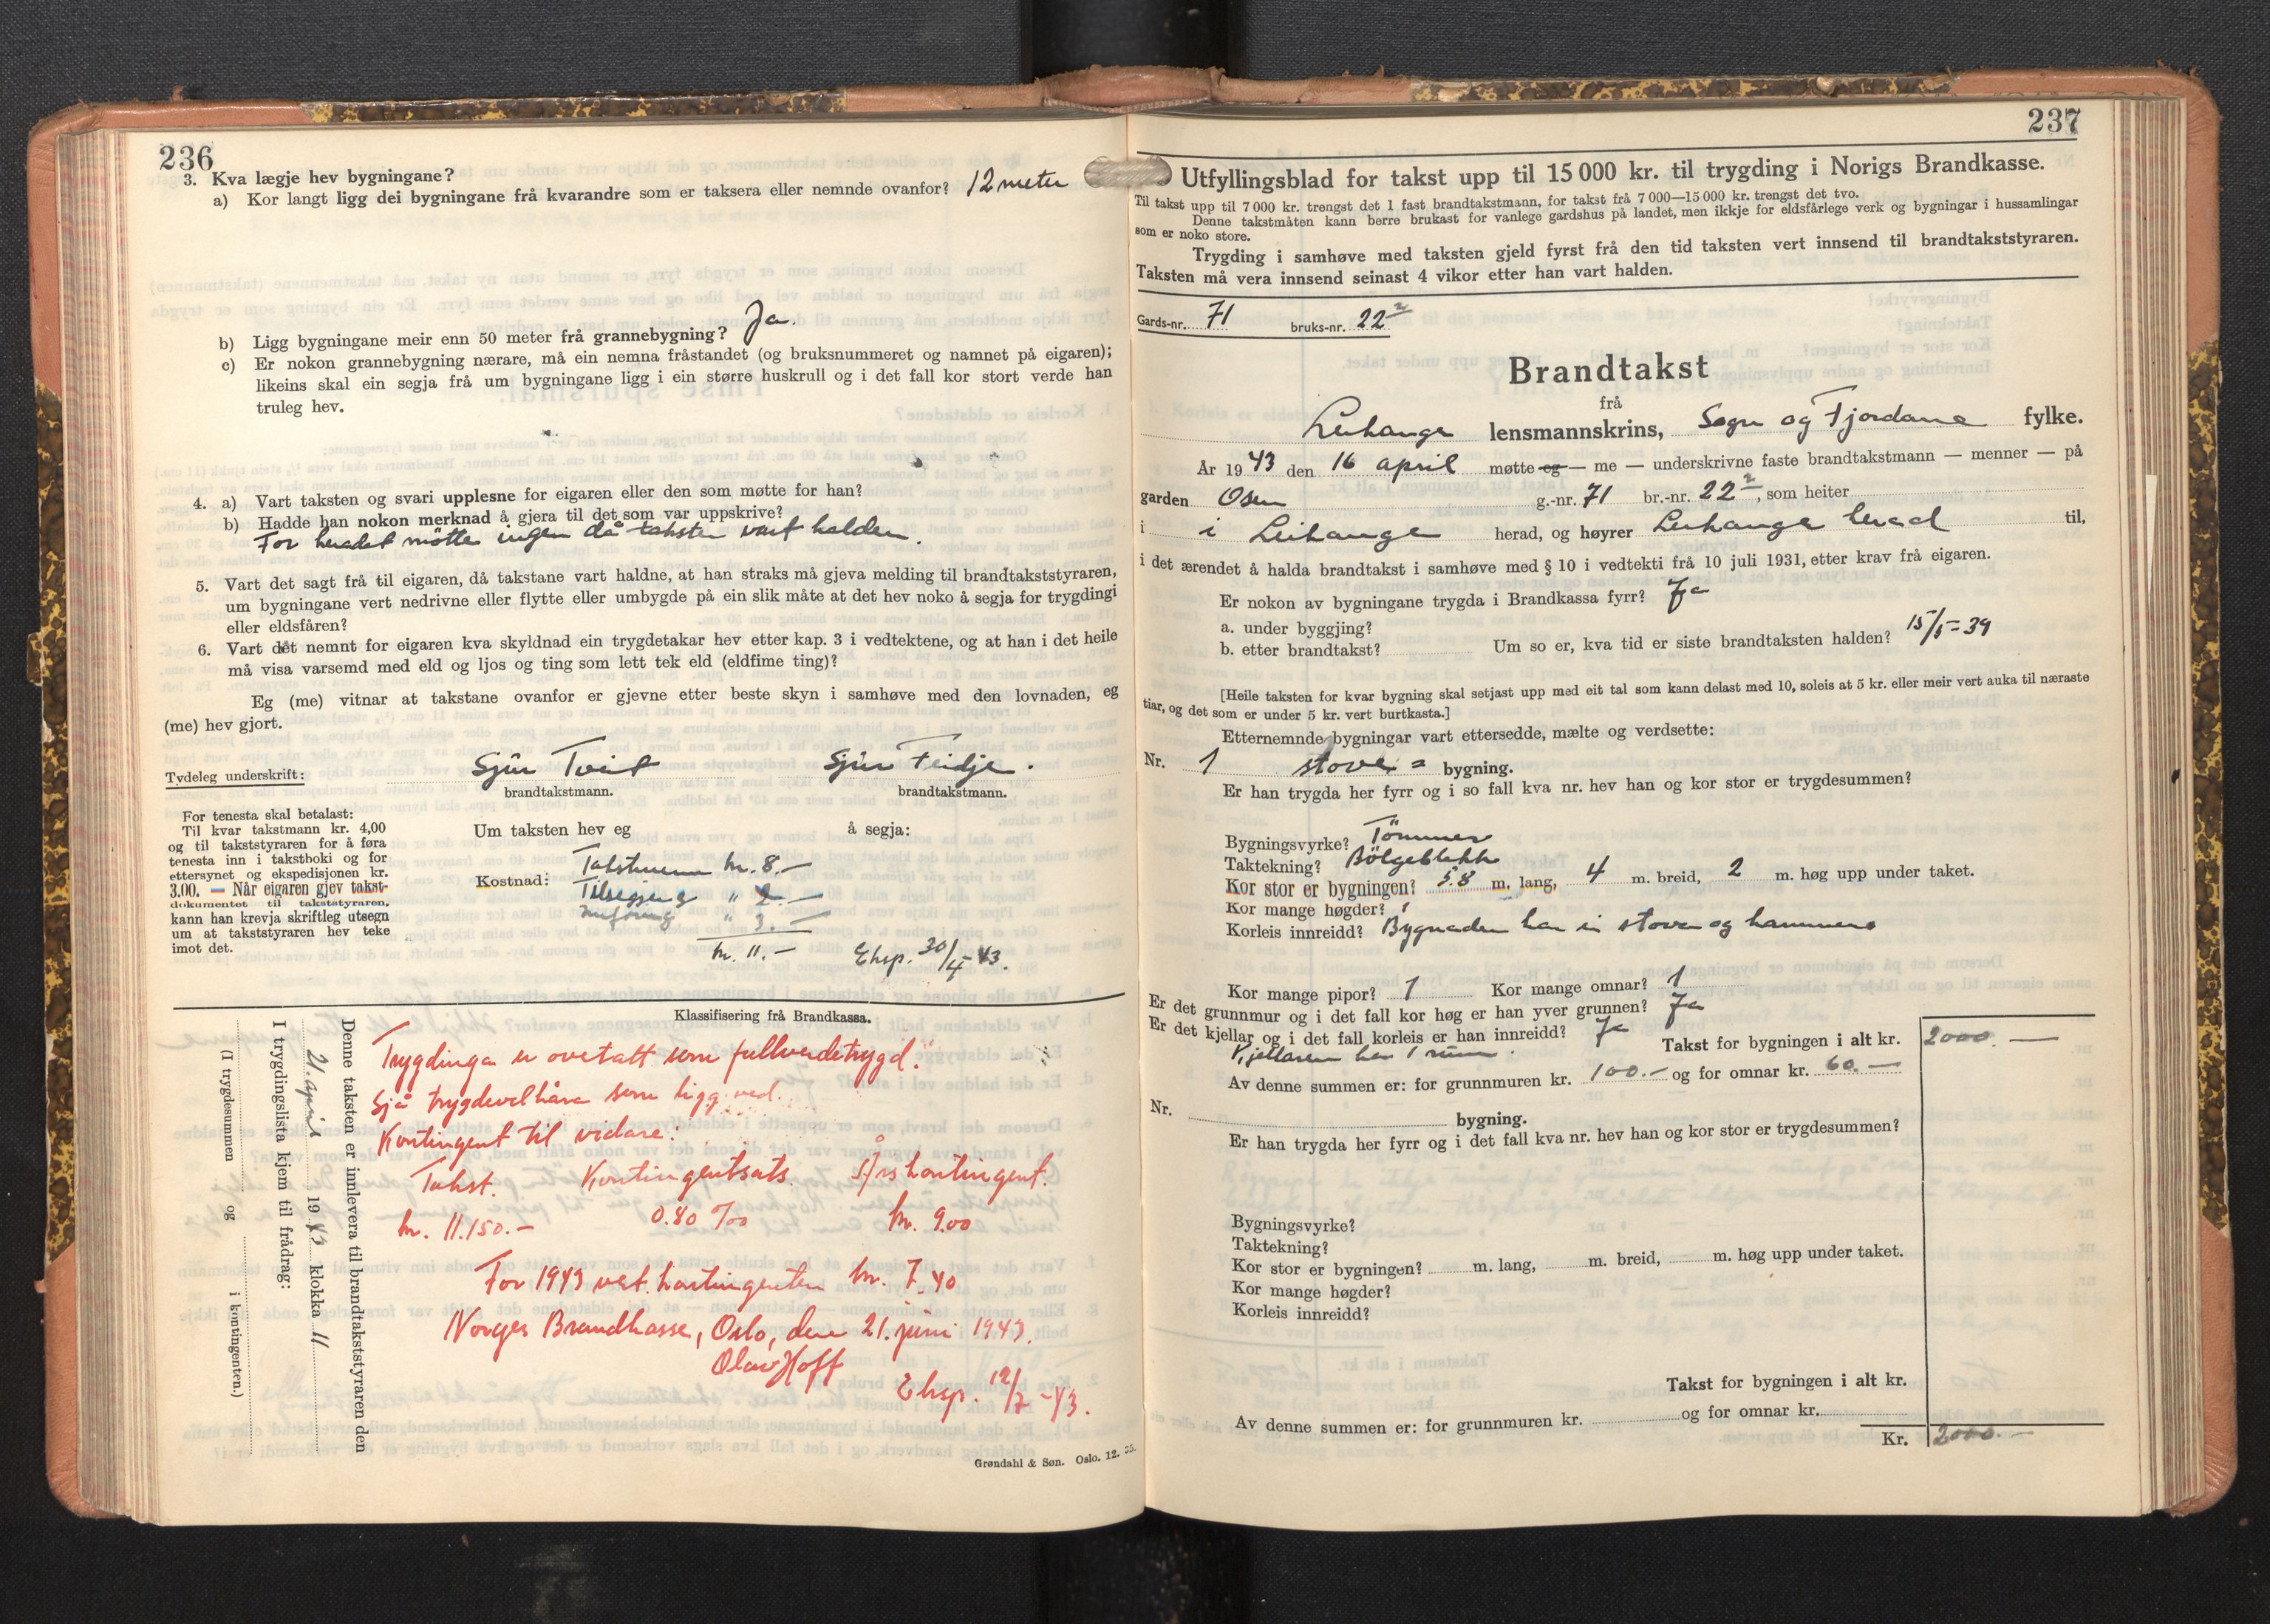 236
3. Kva lægje hev bygningane?
a) Kor langt ligg dei bygningane frå kvarandre som er taksera eller nemnde ovanfor? 12 meter
b) Ligg bygningane meir enn 50 meter frå grannebygning? Ja.
c) Er nokon grannebygning nærare, må ein nemna fråstandet (og bruksnummeret og namnet på eigaren);
likeins skal ein segja frå um bygningane ligg i ein større huskrull og i det fall kor stort verde han
truleg hev.
4. a) Vart taksten og svari upplesne for eigaren eller den som møtte for han?
b) Hadde han nokon merknad å gjera til det som var uppskrive?
For heradet møtte ingen då taksten vart halden.
5. Vart det sagt frå til eigaren, då takstane vart haldne, at han straks må gjeva melding til brandtakststyraren,
um bygningane vert nedrivne eller flytte eller umbygde på ein slik måte at det hev noko å segja for trygdingi
eller eldsfåren?
6. Vart det nemnt for eigaren kva skyldnad ein trygdetakar hev etter kap. 3 i vedtektene, og at han i det heile
må visa varsemd med eld og ljos og ting som lett tek eld (eldfime ting)?
Eg (me) vitnar at takstane ovanfor er gjevne etter beste skyn i samhøve med den lovnaden, eg
(me) hev gjort.
Tydeleg underskrift: Sjur Tveit Sjur Feidje.
brandtakstmann. brandtakstmann.
For tenesta skal betalast:
Til kvar takstmann kr. 4,00
og til takststyraren for å føra
tenesta inn i takstboki og for
ettersynet og ekspedisjonen kr.
3.00. — Når eigaren gjev takst-
dokumentet til takststyraren,
kann han krevja skriftleg utsegn
um at takststyraren hev teke
imot det.
Um taksten hev eg å segja:
Kostnad: Takstmenn kr. 8.—
Tilsegjing " 2.—
Innføring " 3.—
kr. 11.— Eksp. 30/4-43.
Klassifisering frå Brandkassa.
Trygdinga er overtatt som fullverdetrygd.
Sjå trygdevilkåra som ligg ved.
Kontingent til vidare:
Takst. Kontingentsats. Årskontingent.
kr. 11.150.— 0.80 ‰ kr. 9.00
For 1943 vert kontingenten kr. 7.40
Norges Brandkasse, Oslo, den 21. juni 1943.
Olav Hoff
Eksp. 12/7-43.
Denne taksten er innlevera til brandtakststyraren den
21. april 1943 klokka 11
I trygdingslista kjem til frådrag:
(I trygdesummen og i kontingenten.)
Grøndahl & Søn. Oslo. 12. 35.
237
Utfyllingsblad for takst upp til 15 000 kr. til trygding i Norigs Brandkasse.
Til takst upp til 7 000 kr. trengst det 1 fast brandtakstmann, for takst frå 7 000—15 000 kr. trengst det tvo.
Denne takstmåten kann berre brukast for vanlege gardshus på landet, men ikkje for eldsfårlege verk og bygningar i hussamlingar
som er noko store.
Trygding i samhøve med taksten gjeld fyrst frå den tid taksten vert innsend til brandtakststyraren.
Taksten må vera innsend seinast 4 vikor etter han vart halden.
Gards-nr. 71 bruks-nr. 22²
Brandtakst
frå
Leikanger lensmannskrins, Sogn og Fjordane fylke.
År 1943 den 16 april møtte eg — me — underskrivne faste brandtakstmann — menner — på
garden Osen g.-nr. 71 br.-nr. 22², som heiter
i i Leikanger herad, og høyrer Leikanger herad til,
i det ærendet å halda brandtakst i samhøve med § 10 i vedtekti frå 10 juli 1931, etter krav frå eigaren.
Er nokon av bygningane trygda i Brandkassa fyrr? Ja
a. under byggjing?
b. etter brandtakst? Um so er, kva tid er siste brandtaksten halden? 15/5-39
[Heile taksten for kvar bygning skal setjast upp med eit tal som kann delast med 10, soleis at 5 kr. eller meir vert auka til næraste
tiar, og det som er under 5 kr. vert burtkasta.]
Etternemnde bygningar vart ettersedde, mælte og verdsette:
Nr. 1 stove= bygning.
Er han trygda her fyrr og i so fall kva nr. hev han og kor stor er trygdesummen?
Bygningsvyrke? Tömmer
Taktekning? Bölgeblekk
Kor stor er bygningen? 5.8 m. lang, 4 m. breid, 2 m. høg upp under taket.
Kor mange høgder? 1
Korleis innreidd? Bygnaden har ei stove og kammers
Kor mange pipor? 1 Kor mange omnar? 1
Er det grunnmur og i det fall kor høg er han yver grunnen? Ja
Er det kjellar og i det fall korleis er han innreidd? Ja
Kjellaren har 1 rum. Takst for bygningen i alt kr. 2000.—
Av denne summen er: for grunnmuren kr. 100.— og for omnar kr. 60.—
Nr. bygning.
Er han trygda her fyrr og i det fall kva nr. hev han og kor stor er trygdesummen?
Bygningsvyrke?
Taktekning?
Kor stor er bygningen? m. lang, m. breid, m. høg upp under taket.
Kor mange høgder?
Korleis innreidd?
Takst for bygningen i alt kr.
Av denne summen er: for grunnmuren kr. og for omnar kr.
Kr. 2000.—